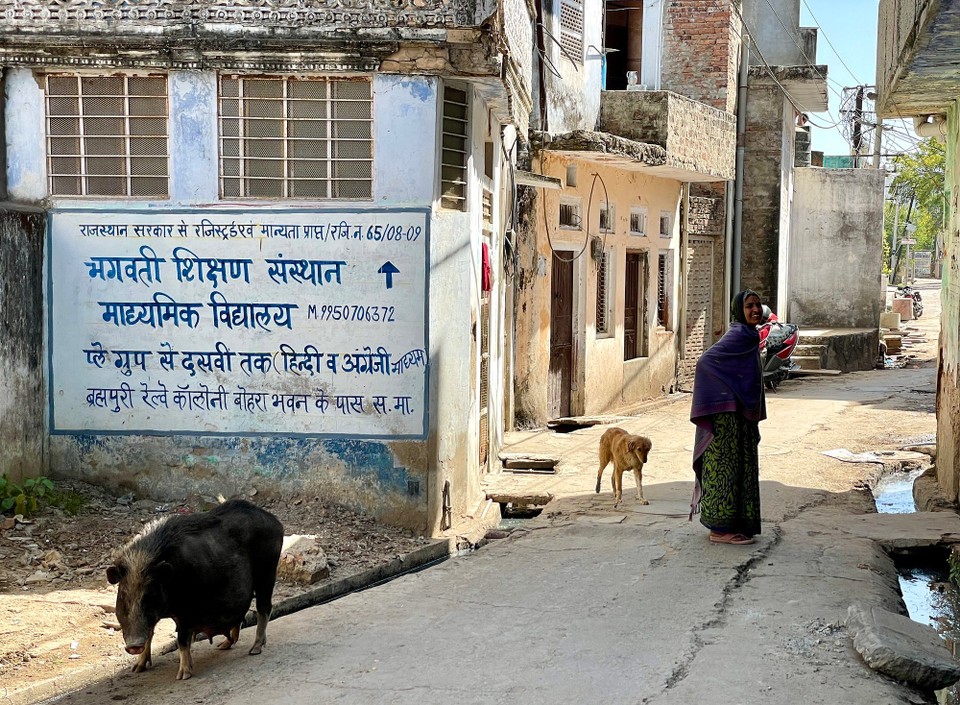 राजस्थान सरकार से रजिस्टर्डएवं मान्यता प्राप्त/रजि.न. 65/08-09
भगवती शिक्षण संस्थान ↑
माध्यमिक विद्यालय M 9950706372
प्ले ग्रुप से दसवी तक (हिन्दी व अंग्रेजी माध्यम)
ब्रह्मपुरी रेल्वे कॉलोनी बोहरा भवन के पास स. मा.